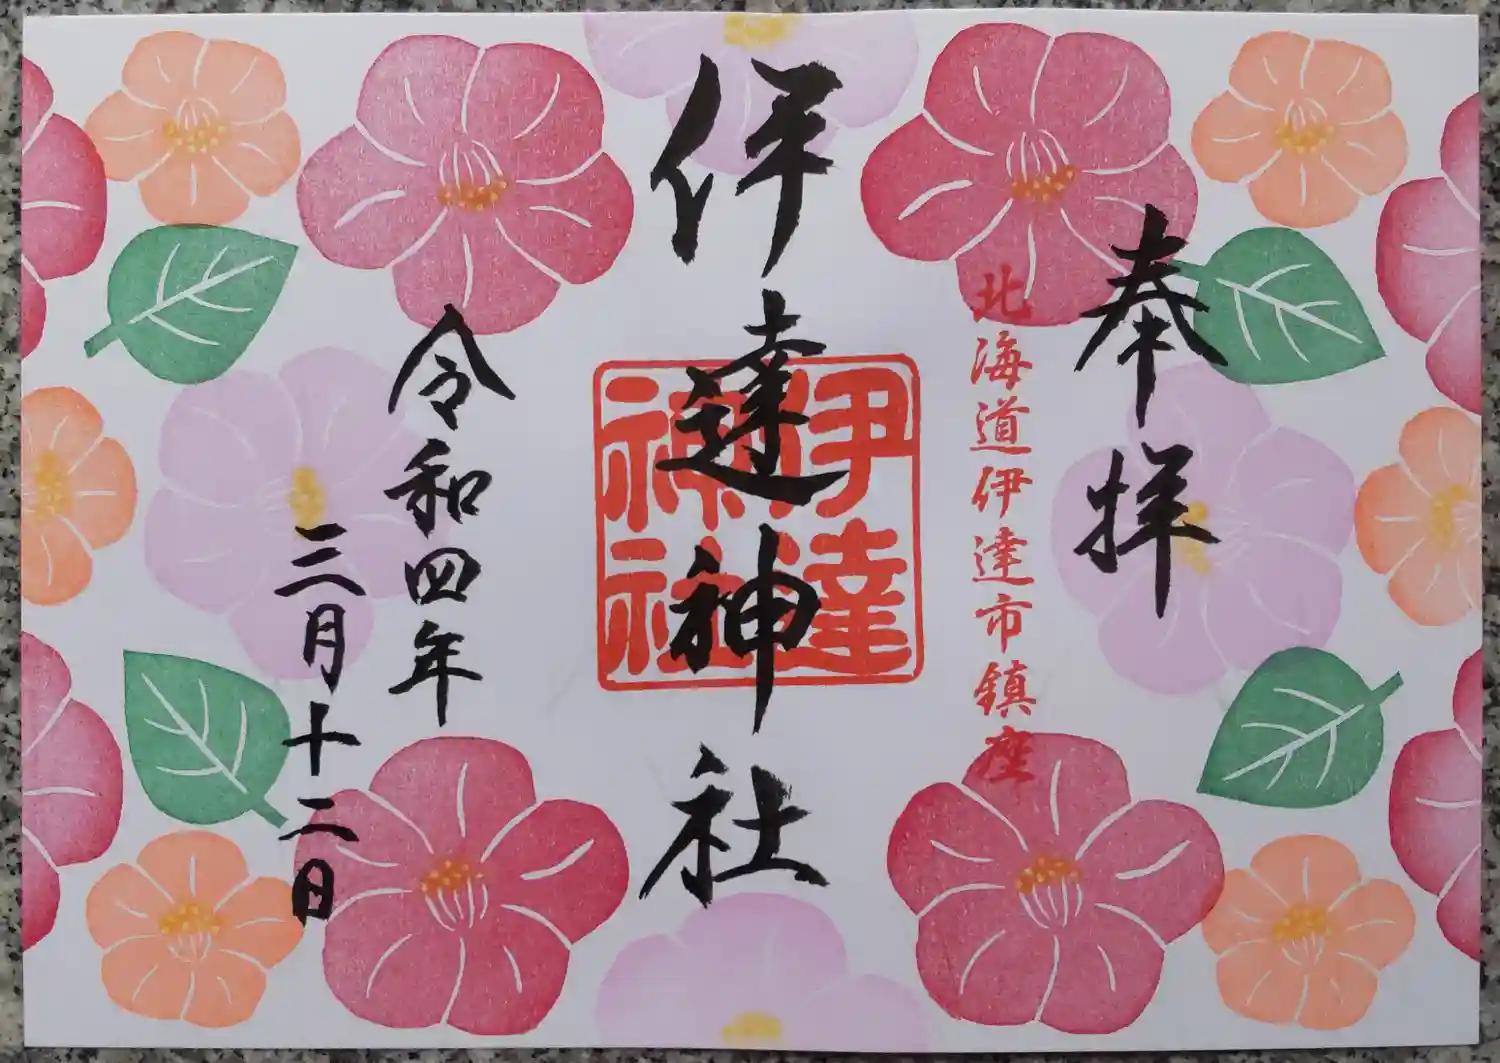 奉拝
北海道伊達市鎮座
伊達神社
伊達
神社
令和四年
三月十二日